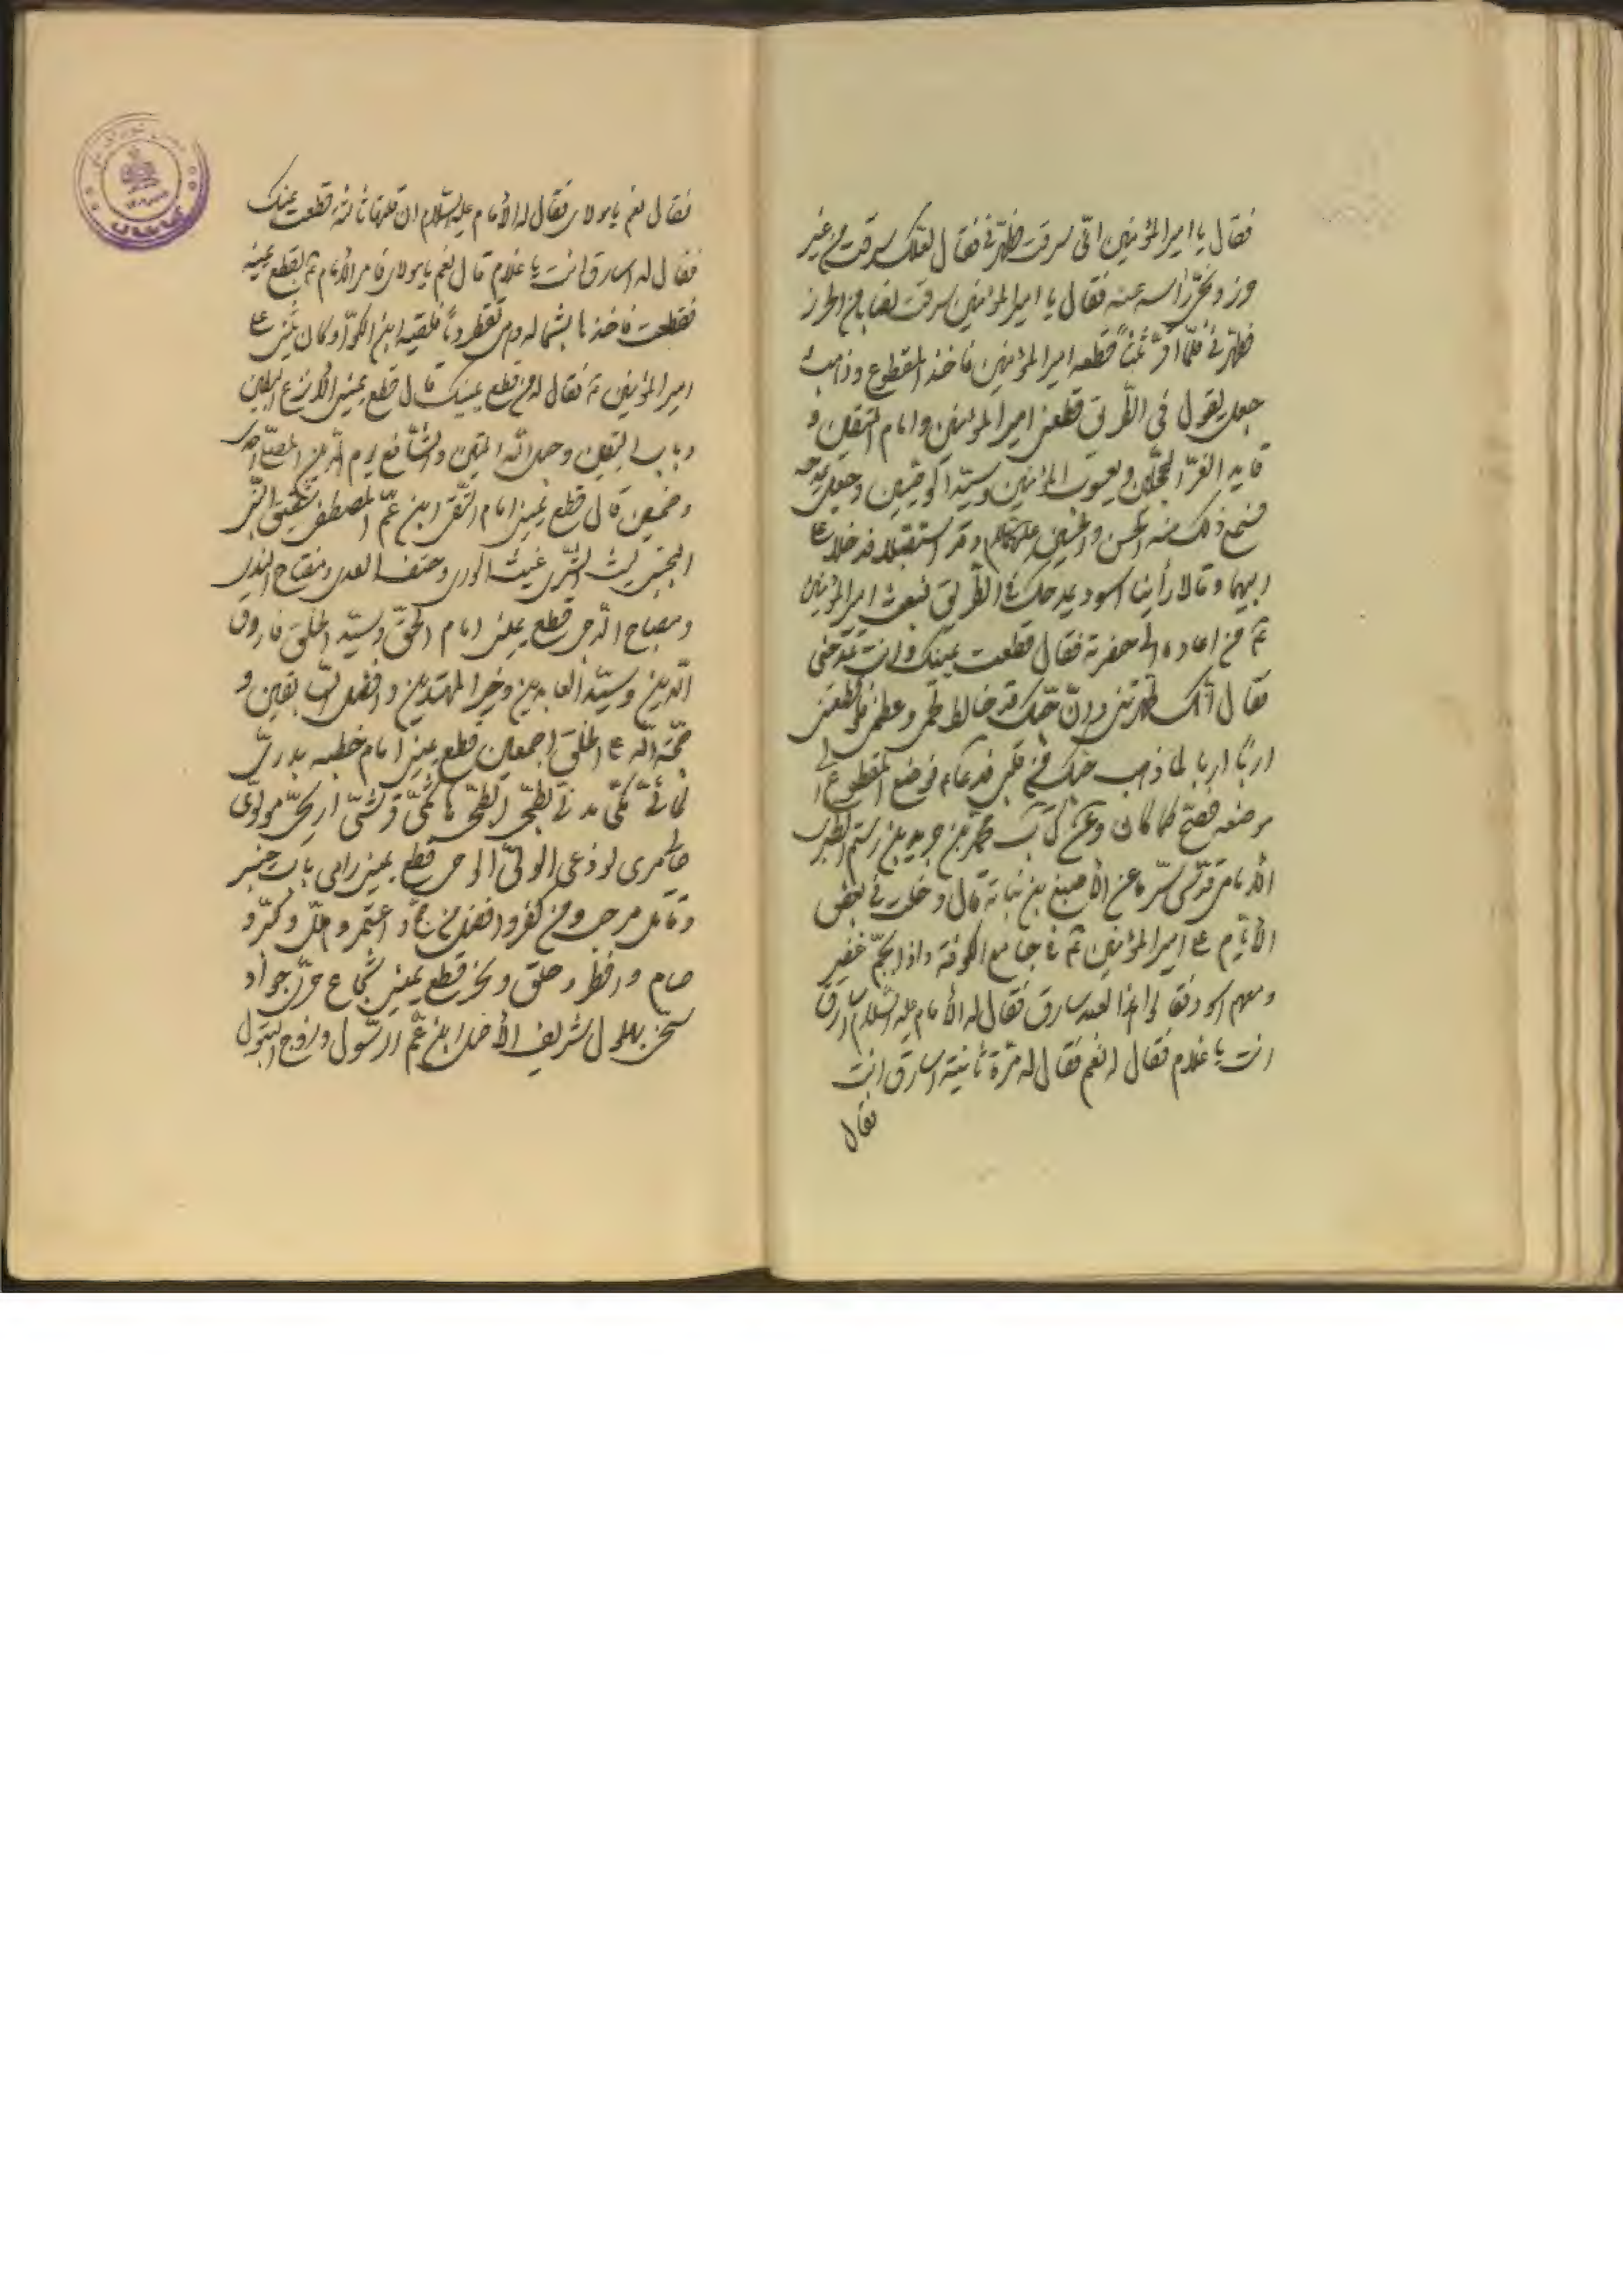 فقال يا امير المؤمنين انى سرقت فطهرنى فقال لعلك سرقت من غير
حرز ونحى رأسه عنه فقال يا امير المؤمنين سرقت نصابا من الحرز
فطهرنى فلما اقر ثلثا قطعه امير المؤمنين فاخذ المقطوع وذهب
جعل يقول فى الطريق قطعنى امير المؤمنين وامام المتقين و
قايد الغر المحجلين ويعسوب المؤمنين وسيد الوصيين وجعل يمدحه
فسمع ذلك منه الحسن والحسين وقد استقبلا فدخلا على
ابيهما وقالا رأينا اسود يمدحك فى الطريق فبعث امير المؤمنين
من اعاده الى حضرته فقال قطعت يمينك وانت تمدحنى
فقال انك طهرتنى وان حبك قد خالط لحمى وعظمى فلو قطعتنى
اربا اربا لما ذهب حبك من قلبى فدعاء فوضع المقطوع الى
موضعه فصح كما كان وعن كتاب محمد بن جرير بن رستم الطبرى
الامامى قدس سره عن الأصبغ بن نباتة قال دخلت فى بعض
الأيام على امير المؤمنين فى جامع الكوفة واذا بجم غفير
ومعهم اسود فقالوا هذا العبد سارق فقال له الأمام عليه السلام اسارق
انت يا غلام فقال له نعم فقال له مرة ثانية اسارق انت
فقال
فقال نعم يا مولاى فقال له الأمام عليه السلام ان قلتها ثالثة قطعت يمينك
فقال له اسارق انت يا غلام قال نعم يا مولاى فامر الأمام بقطع يمينه
فقطعت فاخذها بشماله وهى تقطر دما فلقيه ابن الكوا وكان يشنئ
امير المؤمنين فقال له من قطع يمينك قال قطع يمينى الأنزع البطين
وباب اليقين وحبل الله المتين والشافع يوم الدين المصلى احدى
وخمسين قال قطع يمينى امام التقى ابن عم المصطفى شقيق النبى
المجتبى ليث الثرى غيث الورى وحتف العدى ومفتاح الندى
ومصباح الدجى قطع يمينى امام الحق وسيد الخلق فاروق
الدين وسيد العابدين وخير المهتدين وافضل السابقين و
حجة الله على الخلق اجمعين قطع يمينى امام خطبه بدرى
مكى مدنى ابطحى هاشمى قرشى اريحى مولوى
طالبى جرى لوذعى الولى الوصى قطع يمينى داحى باب خيبر
وقاتل مرحب ومن كفر وافضل من حج واعتمر وهلل وكبر و
صام وافطر وحلق ونحر قطع يمينى شجاع جرى جواد
سخى بهلول شريف الأصل ابن عم الرسول وزوج البتول